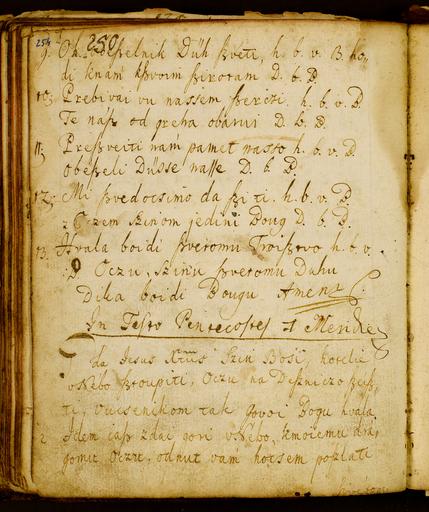 254 250
9. Oh Duh szveti, h. b. v. B. ho
di knam kszvoim szirotam D. b. D.
10; Prebivai vu nassem szerczi. h. b. v. D
Te nasz od greha obarui D. b. D.
11; Preszveiti nam pamet nasto h. b. v. D.
obeszeli Dusse nasse D. b. D.
12; Mi szvedocsimo da szi ti. h. b. v. D.
z Oczem szinom jedini Boug D. b. D.
13. Hvala boidi szvetomu Troisztvo h. b. v.
Oczu, szinu szvetomu Duhu
Dika boidi Bougu Amen
In Festo Pentecostes A Meridie
da Jesus Szin Bosi, hotel
vNebo sztoupiti, Oczu na Deszniczo szesz
ti, Vucsenikom tak govori Bogu hvala
2 odem jasz zdai gori vNebo, kmoiemu dra
gomu Oczu, odnut vam hocsem poszlati